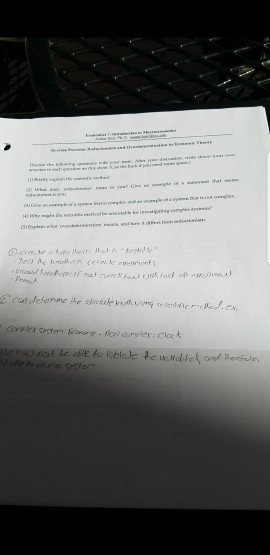 Economics 7: Introduction to Macroeconomics
In-class Exercise: Reductionism and Overdetermination in Economic Theory
Discuss the following questions with your team. After your discussion, write down your own
answers to each question on this sheet. (Use the back if you need more space.)
(1) Briefly explain the scientific method.
(2) What does 'reductionism' mean to you? Give an example of a statement that seems
reductionist to you.
(3) Give an example of a system that is complex and an example of a system that is not complex.
(4) Why might the scientific method be unsuitable for investigating complex systems?
(5) Explain what 'overdetermination' means, and how it differs from reductionism.
① create a hypothesis that is "testable"
- Test the hypothesis (create experiment)
- if not consistent with test of experiment
- Repeat
② can determine the absolute truth using scientific method. ex.
complex system: Economy - Non complex: clock
may not be able to isolate the variables, and therefore,